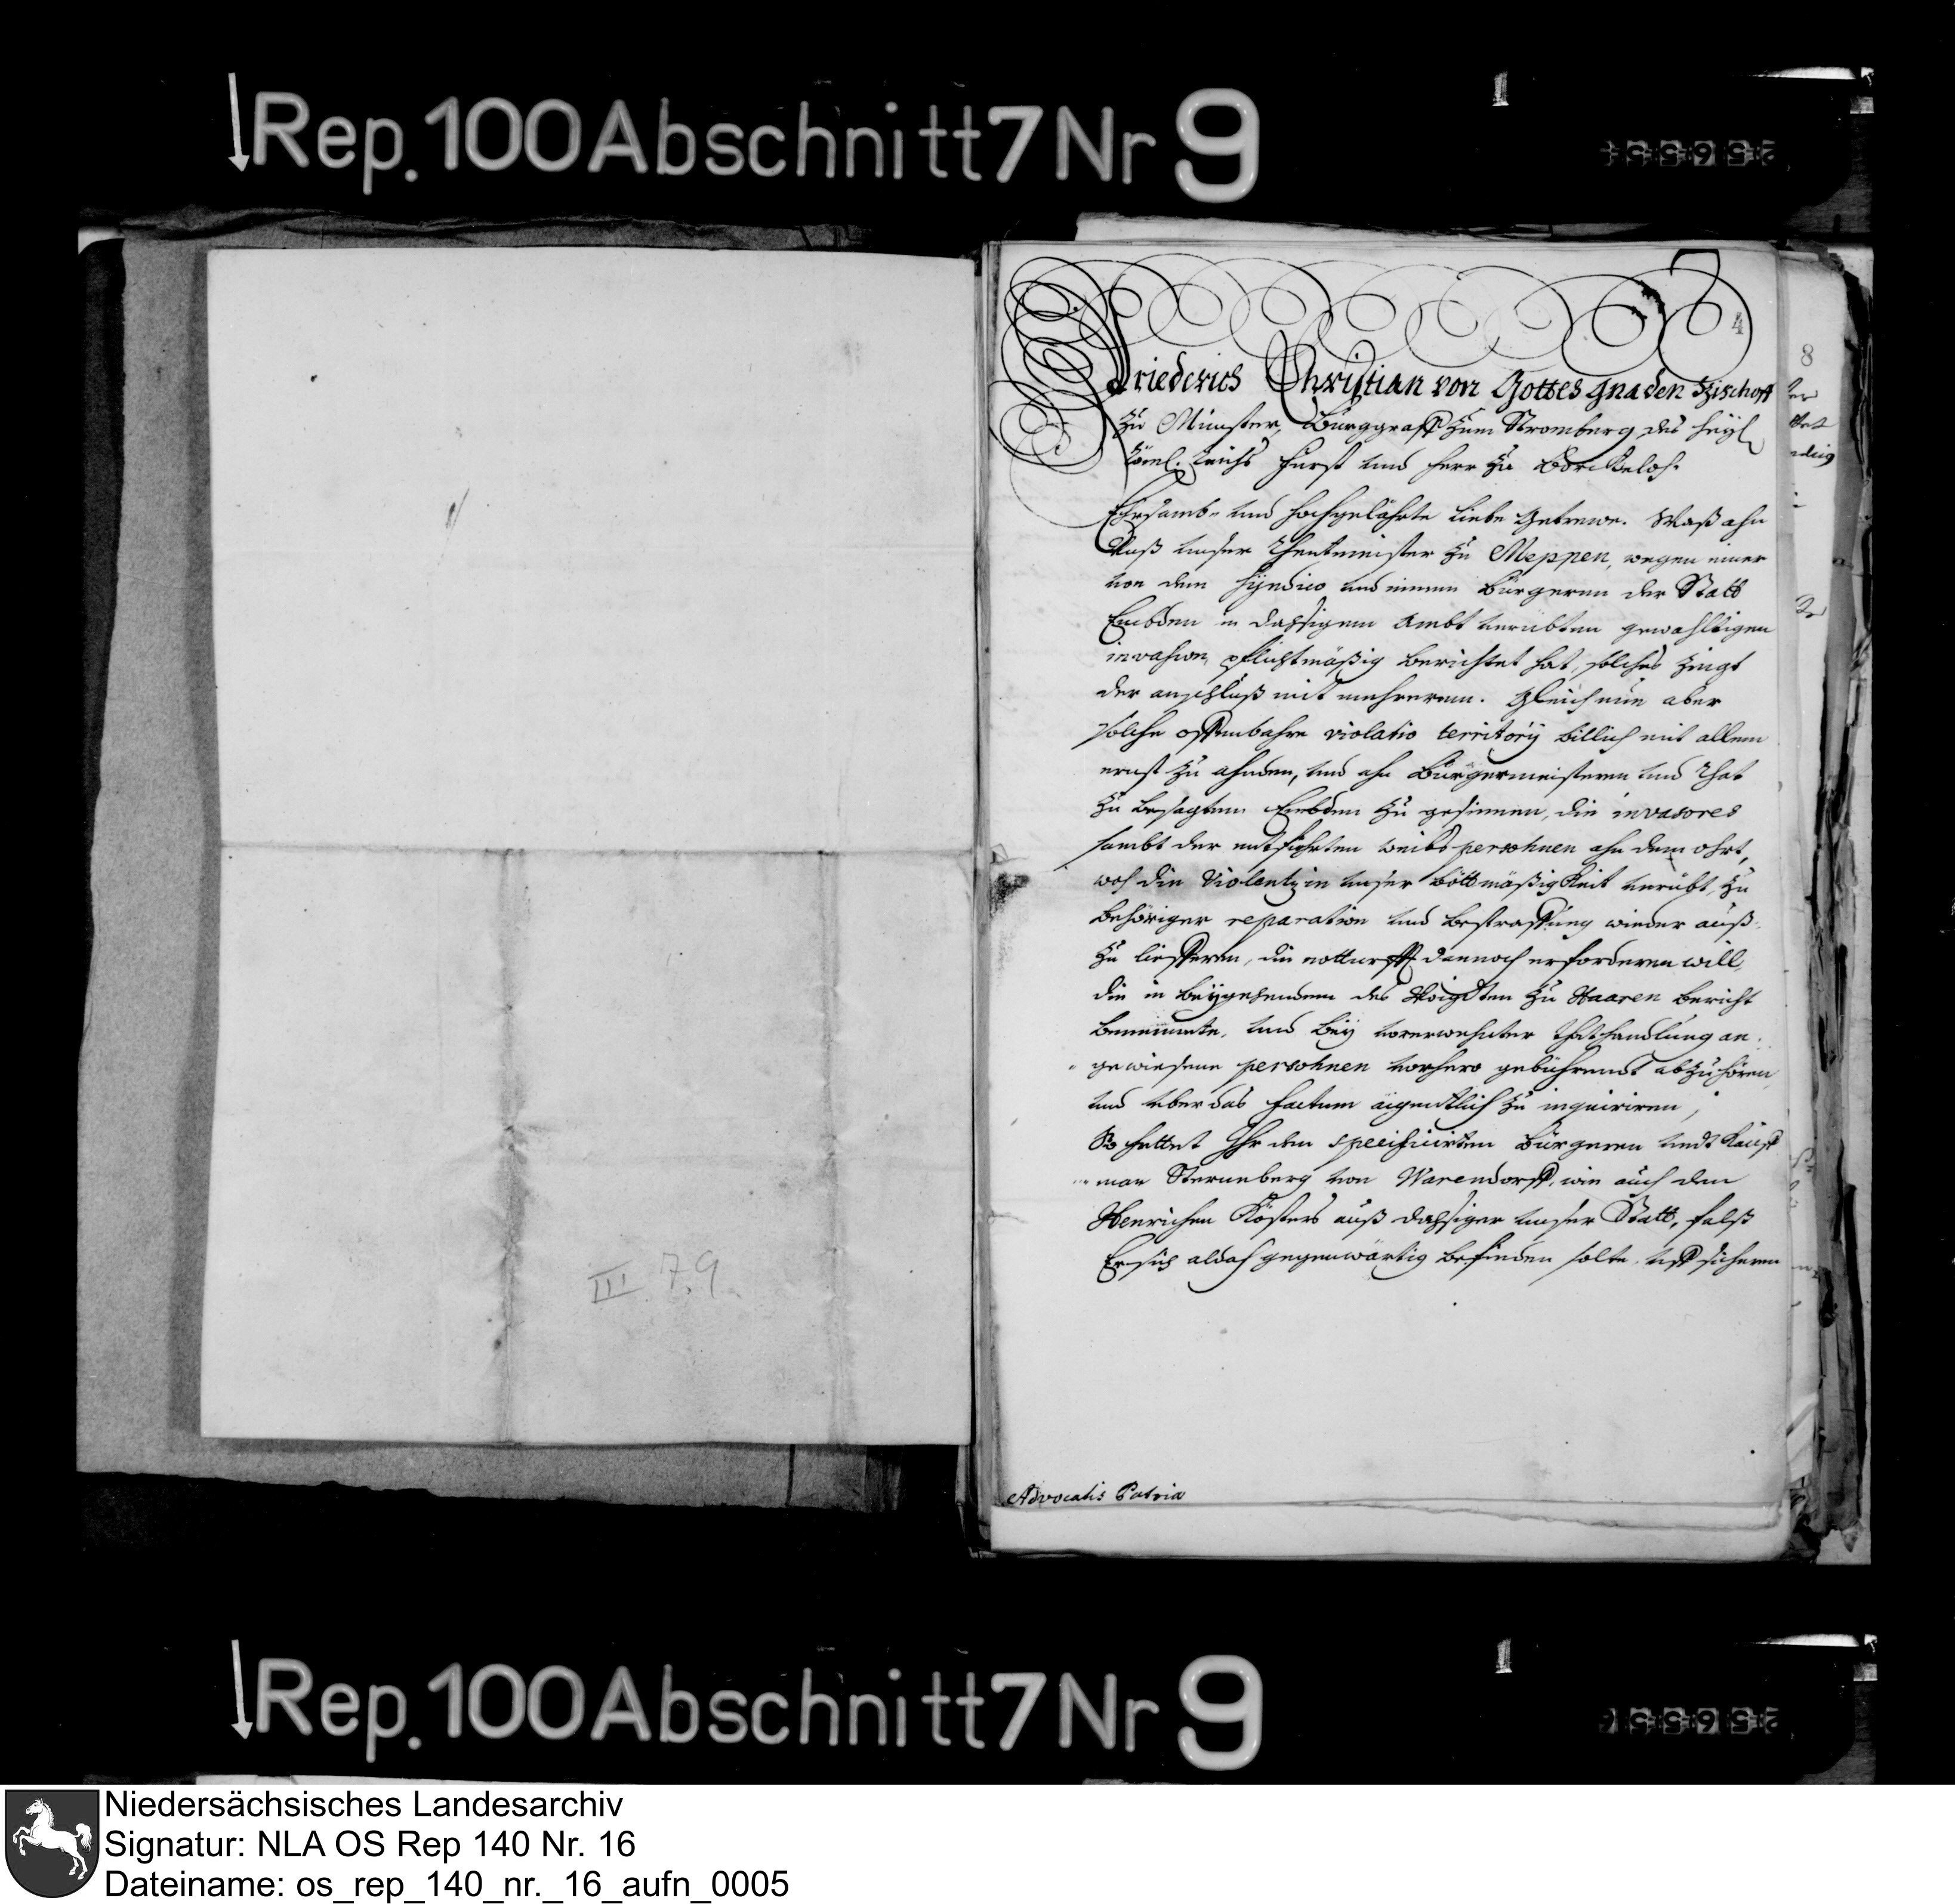 Rep. 100 Abschnitt 7 Nr 9
4
Friederich Christian von Gottes gnaden Bischoff
zu Münster, Burggraff zum Stromberg, des heyl.
Röml. Reichs Furst und Herr zu Borckeloh.
Ehrsamb- und hochgelährte liebe Getrewe. Waß ahn
Unß unser Rhentmeister zu Meppen, wegen einer
von dem Syndico und einem Bürgeren der Statt
Embden in dassigem Ambt verubten gewahltigen
invasion, pflichtmäßig berichtet hat, solches zeigt
der anschluß mit mehrerem. Gleich nun aber
solche offenbahre violatio territorÿ billich mit allem
ernst zu ahnden, und ahn Bürgermeisteren und Rhat
zu besagtem Embden zu gesinnen, die invasores
sambt der entfuhrten weibspersohnen ahn dem ohrt,
woh die Violentz in unser bottmäßigkeit verübt, zu
behöriger reparation und bestraffung wieder auß-
zu lieffern, die notturfft dannoch erforderen will,
die in beÿgehendem des Voigdten zu Haaren bericht
benennte, und beÿ vorerwehnter thathandlung an-
gewiesene persohnen vorhero gebührendt abzuhören,
und uber das factum äigendtlich zu inquiriren;
So hettet Ihr den specificirten Bürgeren undt Kauff
man Sternberg von Warendorff, wie auch den
Henrichen Kösters auß dassiger unser Statt, falß
Er sich aldah gegenwärtig befinden solte, uff sicheren
Advocatis Patria
III. 7.9.
8
Rep. 100 Abschnitt 7 Nr 9
Niedersächsisches Landesarchiv
Signatur: NLA OS Rep 140 Nr. 16
Dateiname: os_rep_140_nr._16_aufn_0005